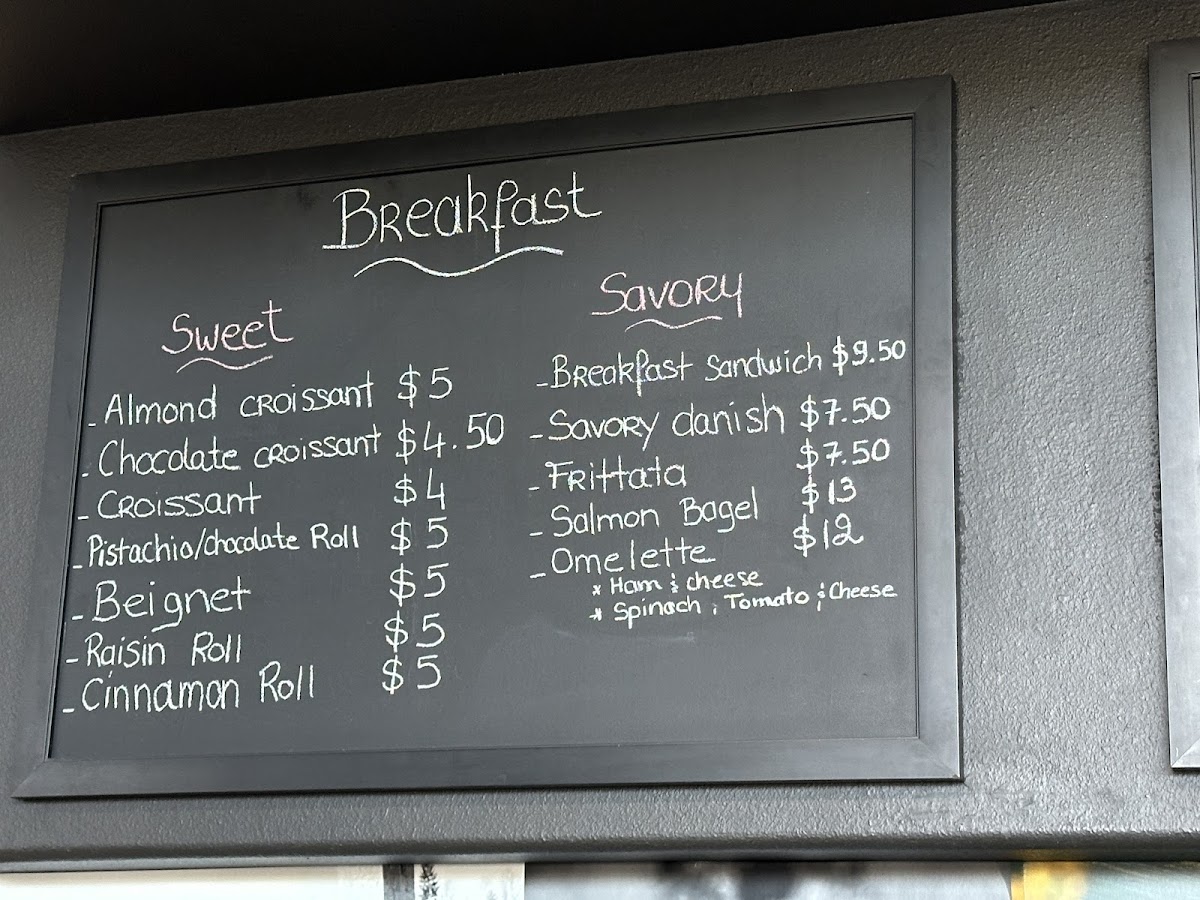 Breakfast
Sweet
- Almond croissant $5
- Chocolate croissant $4.50
- Croissant $4
- Pistachio/chocolate Roll $5
- Beignet $5
- Raisin Roll $5
- Cinnamon Roll $5
Savory
- Breakfast sandwich $9.50
- Savory danish $7.50
- Frittata $7.50
- Salmon Bagel $13
- Omelette $12
* Ham & cheese
* Spinach, Tomato & Cheese